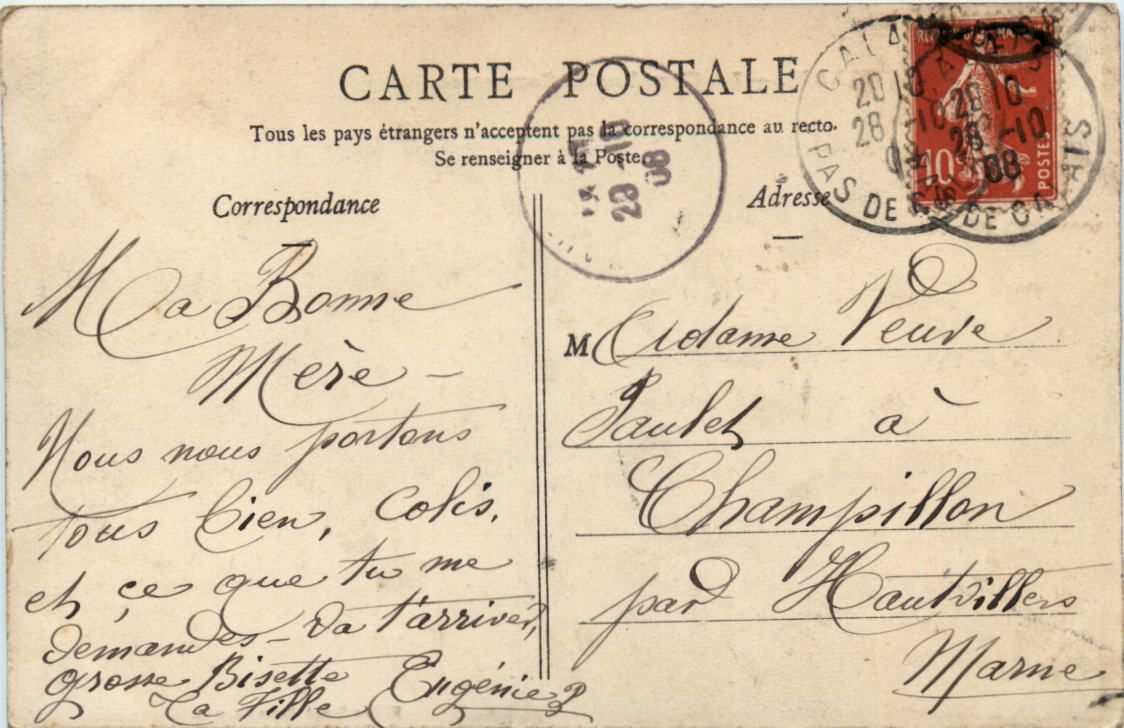 CARTE POSTALE
Tous les pays étrangers n'acceptent pas la correspondance au recto.
Se renseigner à la Poste.
Correspondance
Ma Bonne
Mère -
Nous nous portons
tous bien, Colis,
et ce que tu me
demandes - va t'arriver,
grosse Bisette
Ta Fille Eugénie
Adresse
M adame Veuve
Paulet à
Champillon
par Hautvillers
Marne
CALAIS
20 10
28 -10
08
PAS DE CALAIS
20 10
28 -10
08
29 -10
08
10
POSTES